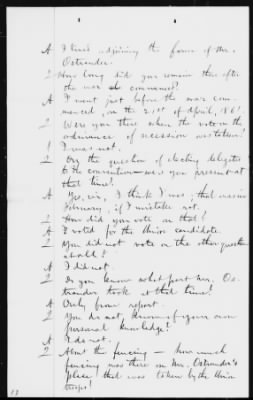 A I lived adjoining the farm of Mr.
Ostrander.
2 How long did you remain there after
the war commenced?
A I went just before the war com-
menced, on the 21st of April, '61
2 Were you there when the vote on the
ordinance of secession was taken?
A I was not.
2 On the question of electing delegates
to the convention were you present at
that time?
A Yes, sir, I think I was; that was in
February, if I mistake not.
2 How did you vote on that?
A I voted for the Union candidate.
2 You did not vote on the other question
at all?
A I did not.
2 Do you know what part Mr. Os-
trander took at that time?
A Only from report.
2 You do not know of your own
personal knowledge?
A I do not.
2 About the fencing — how much
fencing was there on Mr. Ostrander's
place that was taken by the Union
troops?